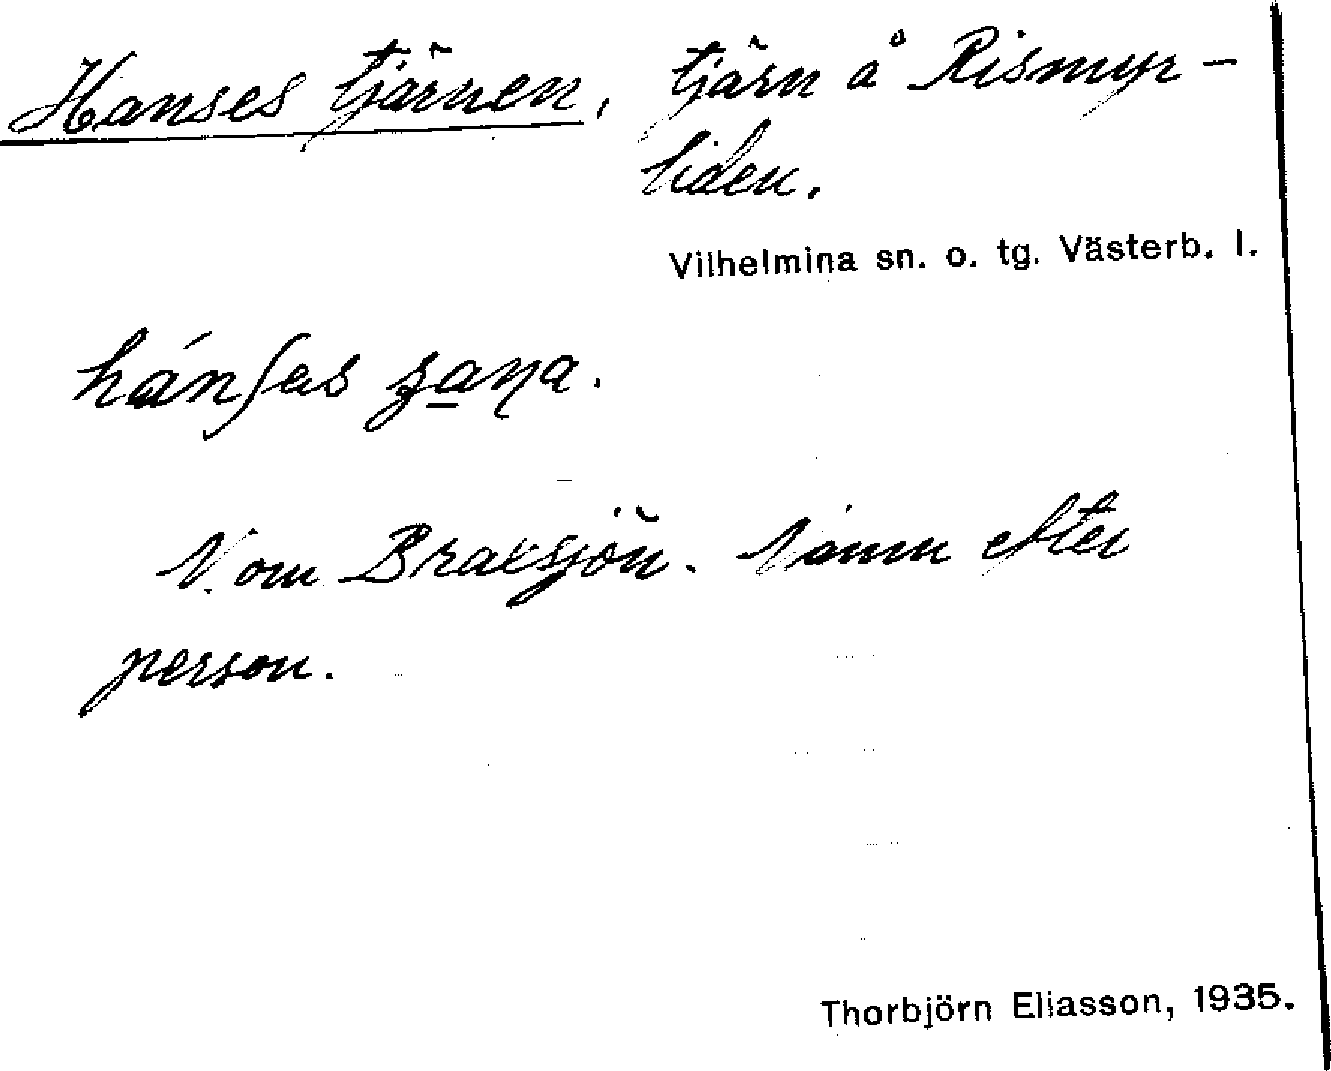 Hanses tjärnen, tjärn å Rismyr-
liden.
Vilhelmina sn. o. tg. Västerb. l.
N. om Braxsjön. Namn efter
person.
Thorbjörn Eliasson, 1935.